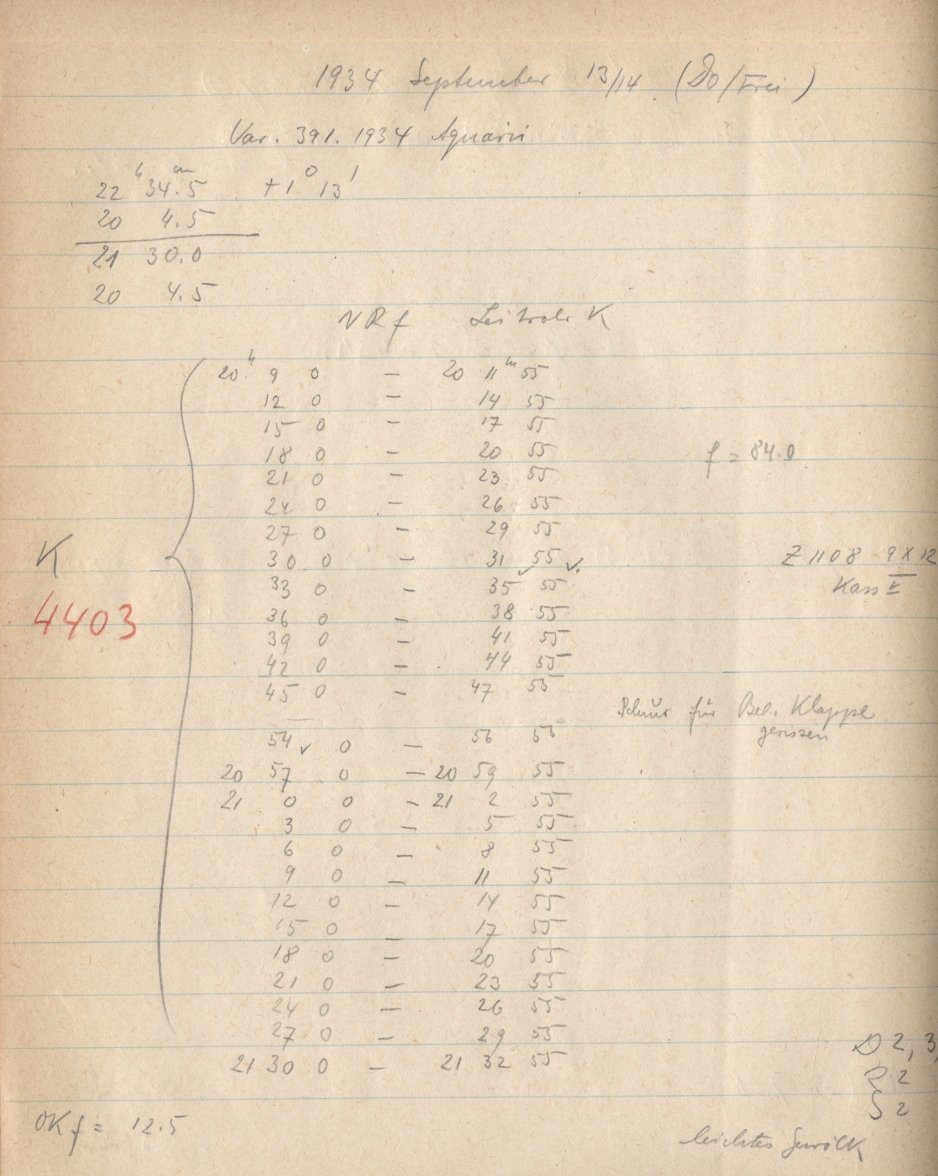 1934 September 13/14 (Do/Frei)
Var. 391. 1934 Aquarii
22 h 34.5 m +1° 13'
20 4.5
21 30.0
20 4.5
NRf Leitrohr K
20 h 9 0 — 20 11 m 55
12 0 — 14 55
15 0 — 17 55
18 0 — 20 55
f = 84.0
21 0 — 23 55
24 0 — 26 55
27 0 — 29 55
30 0 — 31 55 ✓
Z 1108 9 X 12
33 0 — 35 55
Kass
K
4403
36 0 — 38 55
39 0 — 41 55
42 0 — 44 55
45 0 — 47 55
Schnur für Bel. Klappe
gerissen
54 ✓ 0 — 56 55
20 57 0 — 20 59 55
21 0 0 — 21 2 55
3 0 — 5 55
6 0 — 8 55
9 0 — 11 55
12 0 — 14 55
15 0 — 17 55
18 0 — 20 55
21 0 — 23 55
24 0 — 26 55
27 0 — 29 55
21 30 0 — 21 32 55
D 2,3
R 2
S 2
OKf = 12.5
leichtes Gewölk